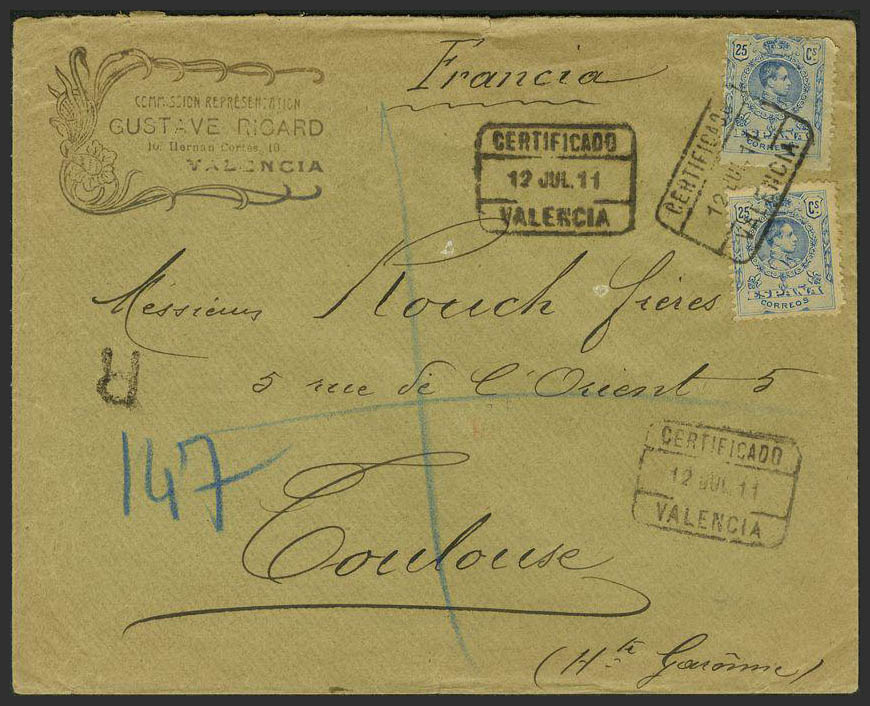 COMMISSION REPRÉSENTATION
GUSTAVE RICARD
10. Hernan Cortés, 10
VALENCIA
Francia
CERTIFICADO
12 JUL.11
VALENCIA
25 Cs
CORREOS
CERTIFICADO
12 JUL.11
VALENCIA
25 Cs
CORREOS
Messieurs Rouch frères
5 rue de l'Orient 5
R
147
CERTIFICADO
12 JUL.11
VALENCIA
Toulouse
(Hte Garonne)